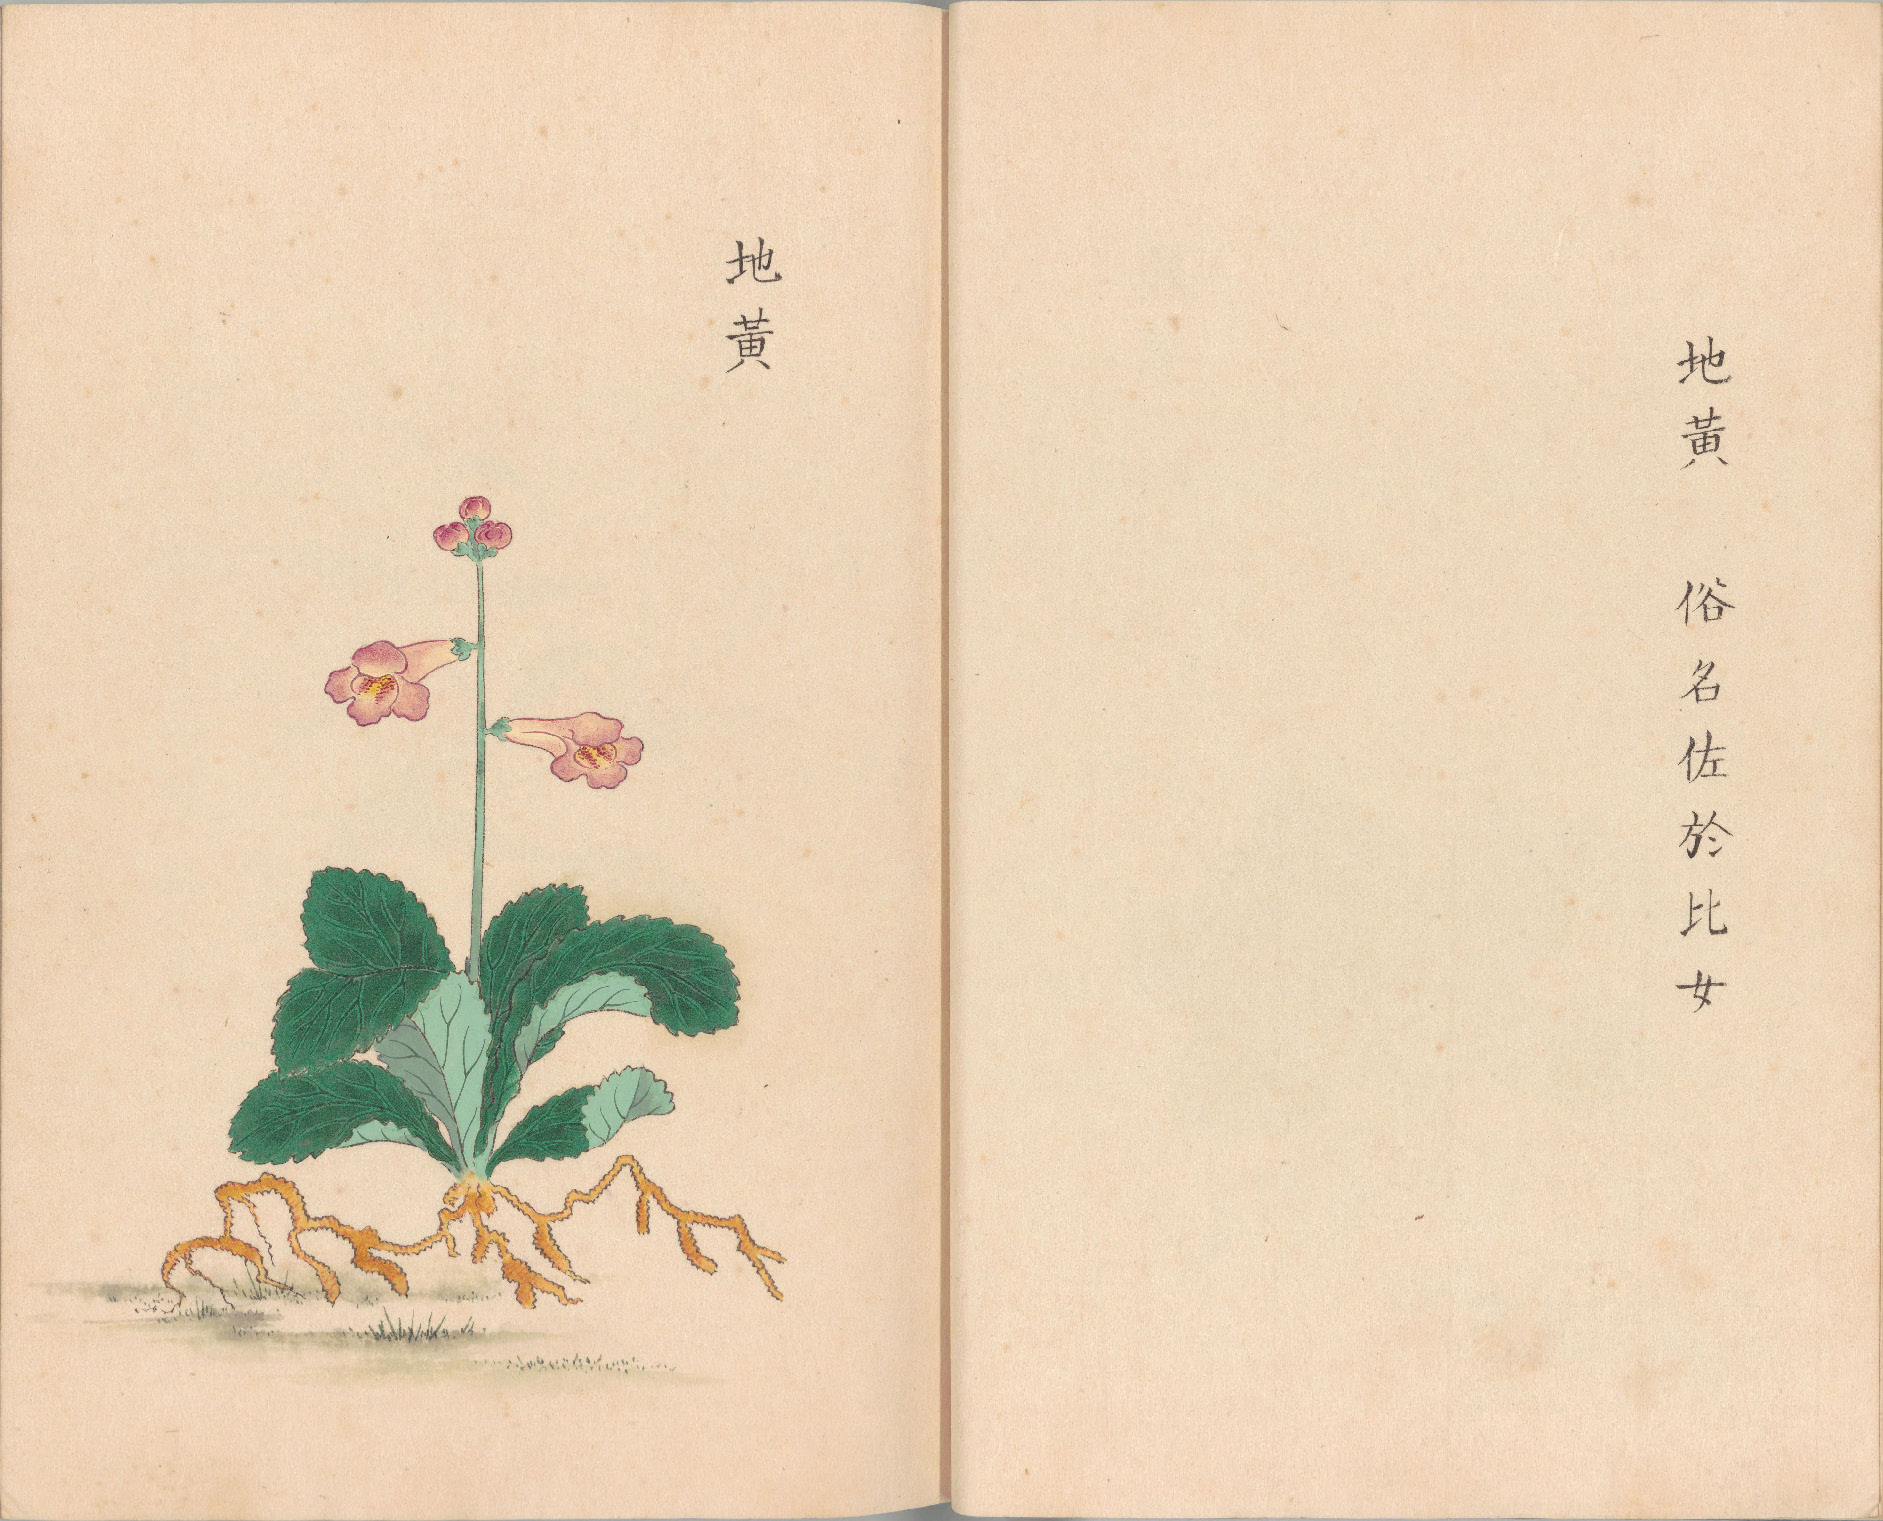 地黃 俗名佐於比女
地黃